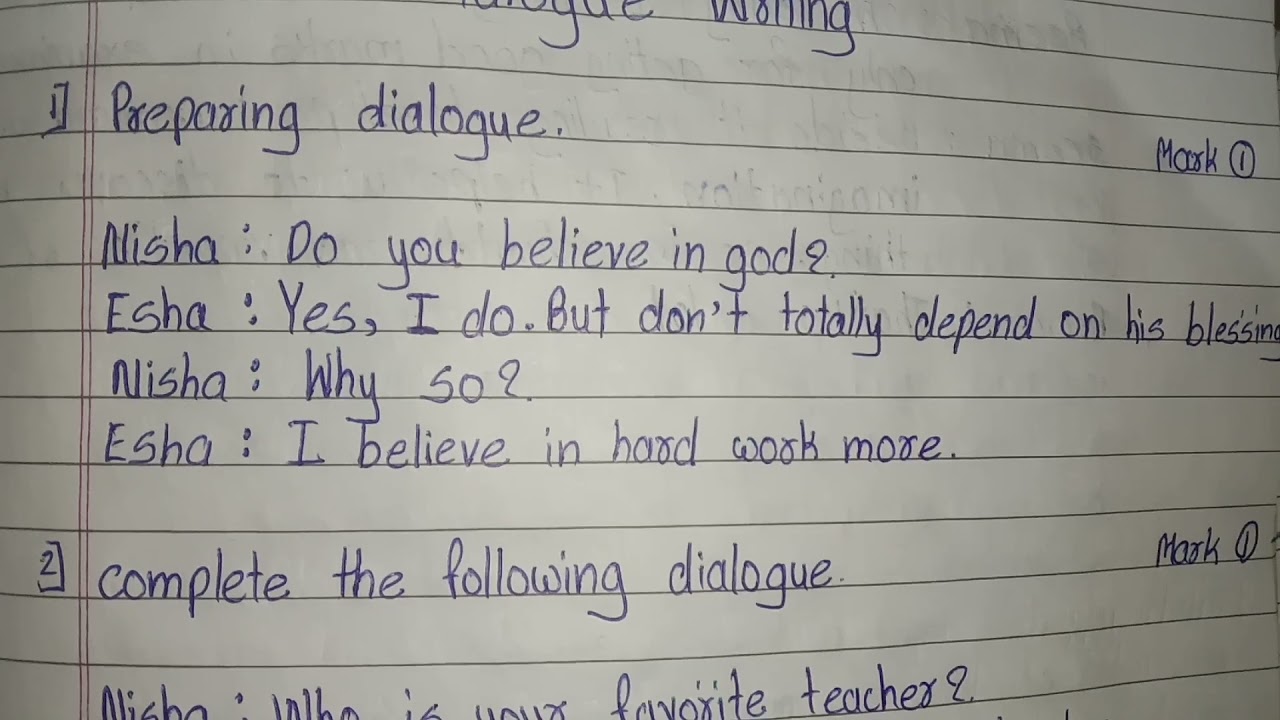 Dialogue Writing
1] Preparing dialogue.
Mark ①
Nisha : Do you believe in god?
Esha : Yes, I do. But don't totally depend on his blessing
Nisha : Why so?
Esha : I believe in hard work more.
Mark ①
2] complete the following dialogue.
Nisha : Who is your favorite teacher?